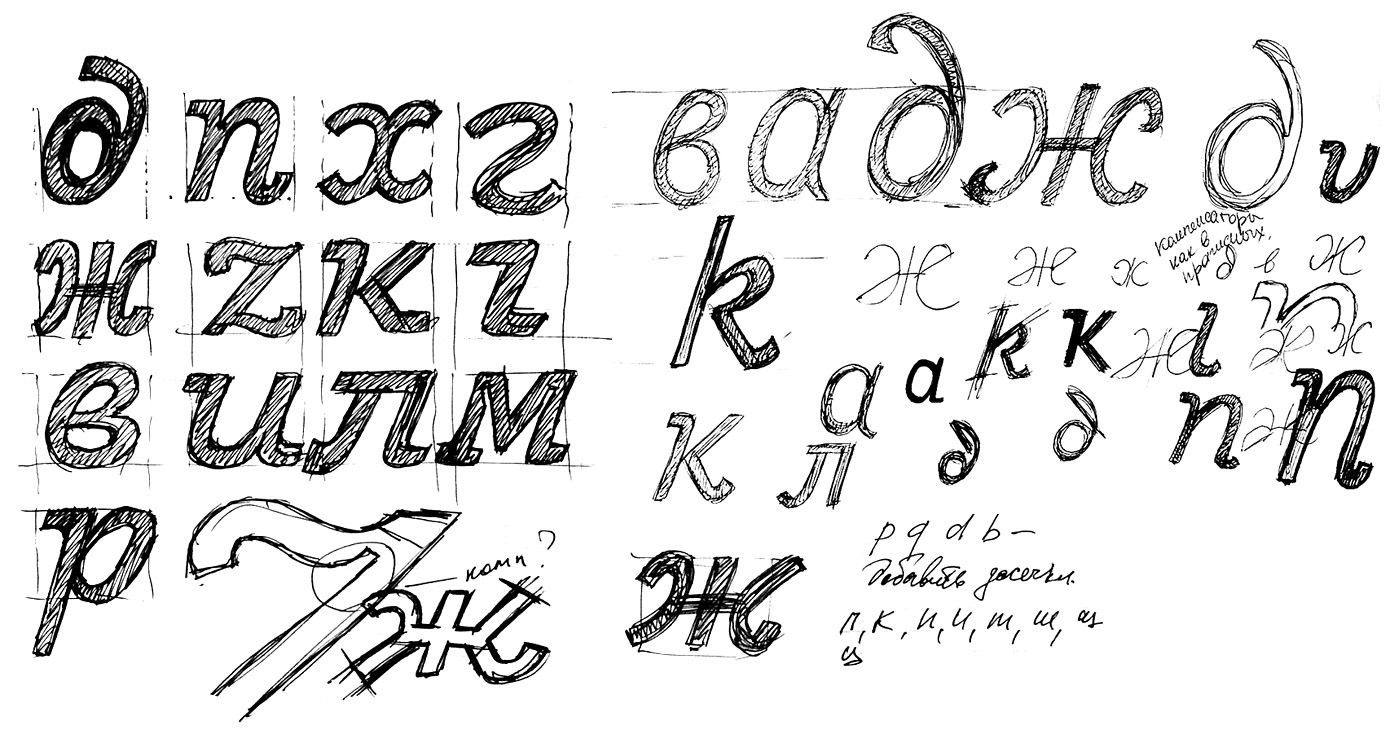 д п х г
ж z к г
в и л м
р
комп?
ж
в а д ж д и
k
ж ж х в ж
компенсаторы
как в
прямых.
k к ж г п ж ж
а а
к л д д п ж п
ж
p q d b –
Добавить засечки.
п, к, и, ц, т, ш, щ
ц